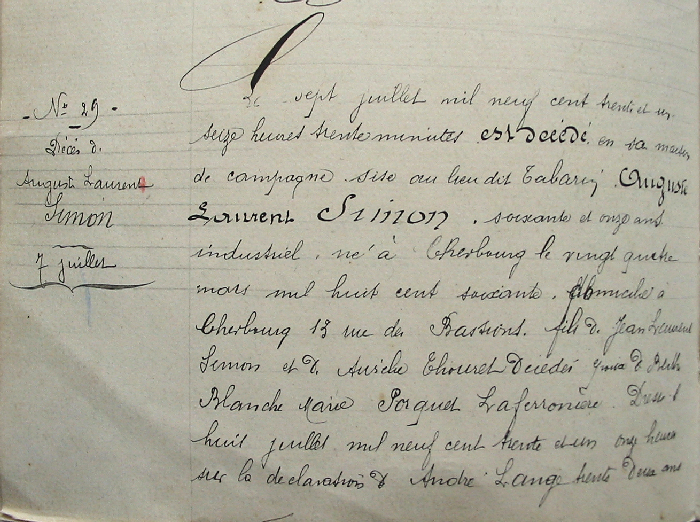 N° 29
Décès d.
Auguste Laurent
Simon
7 juillet
Le sept juillet mil neuf cent trente et un
seize heures trente minutes est décédé en sa maison
de campagne sise au lieu dit Tabarin, Auguste
Laurent Simon, soixante et onze ans
industriel, né à Cherbourg le vingt quatre
mars mil huit cent soixante, domicilié à
Cherbourg 13 rue des Bastions. fils d. Jean Laurent
Simon et d. Aurélie Thouret décédés époux d.
Blanche Marie Porquet Laferronière. Dressé l
huit juillet mil neuf cent trente et un onze heures
sur la déclaration d André Lange trente deux ans